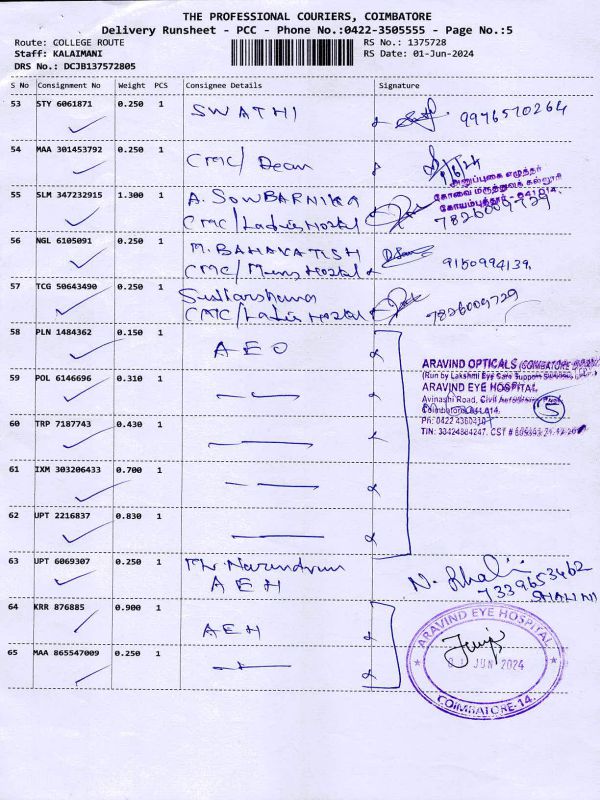 THE PROFESSIONAL COURIERS, COIMBATORE
Delivery Runsheet - PCC - Phone No.:0422-3505555 - Page No.:5
Route: COLLEGE ROUTE
Staff: KALAIMANI
DRS No.: DCJB137572805
RS No.: 1375728
RS Date: 01-Jun-2024
S No Consignment No Weight PCS Consignee Details Signature
53 STY 6061871 0.250 1 SWATHI 9976570264
54 MAA 301453792 0.250 1 CMC/ Dean 1/6/24
அனுப்புகை எழுத்தர்
கோவை மருத்துவக் கல்லூரி
கோயம்புத்தூர்-641 014.
55 SLM 347232915 1.300 1 A. SOWBARNIKA
CMC/Ladies Hostel 7826009729
56 NGL 6105091 0.250 1 M. BAHAVATISH
CMC/Mens Hostel 9150994139
57 TCG 50643490 0.250 1
CMC/Ladies Hostel 7826009729
58 PLN 1484362 0.150 1 AEO
ARAVIND OPTICALS (COIMBATORE
(Run by Lakshmi Eye Care Support
ARAVIND EYE HOSPITAL
Avinashi Road, Civil Aerodrome Post
Coimbatore-641 014.
Ph: 0422 4360
TIN: 33424884247. CST #
5
59 POL 6146696 0.310 1
60 TRP 7187743 0.430 1
61 IXM 303206433 0.700 1
62 UPT 2216837 0.830 1
63 UPT 6069307 0.250 1
AEH
7339653462
SHALINI
64 KRR 876885 0.900 1 AEH
65 MAA 865547009 0.250 1
ARAVIND EYE HOSPITAL
01 JUN 2024
COIMBATORE-14.